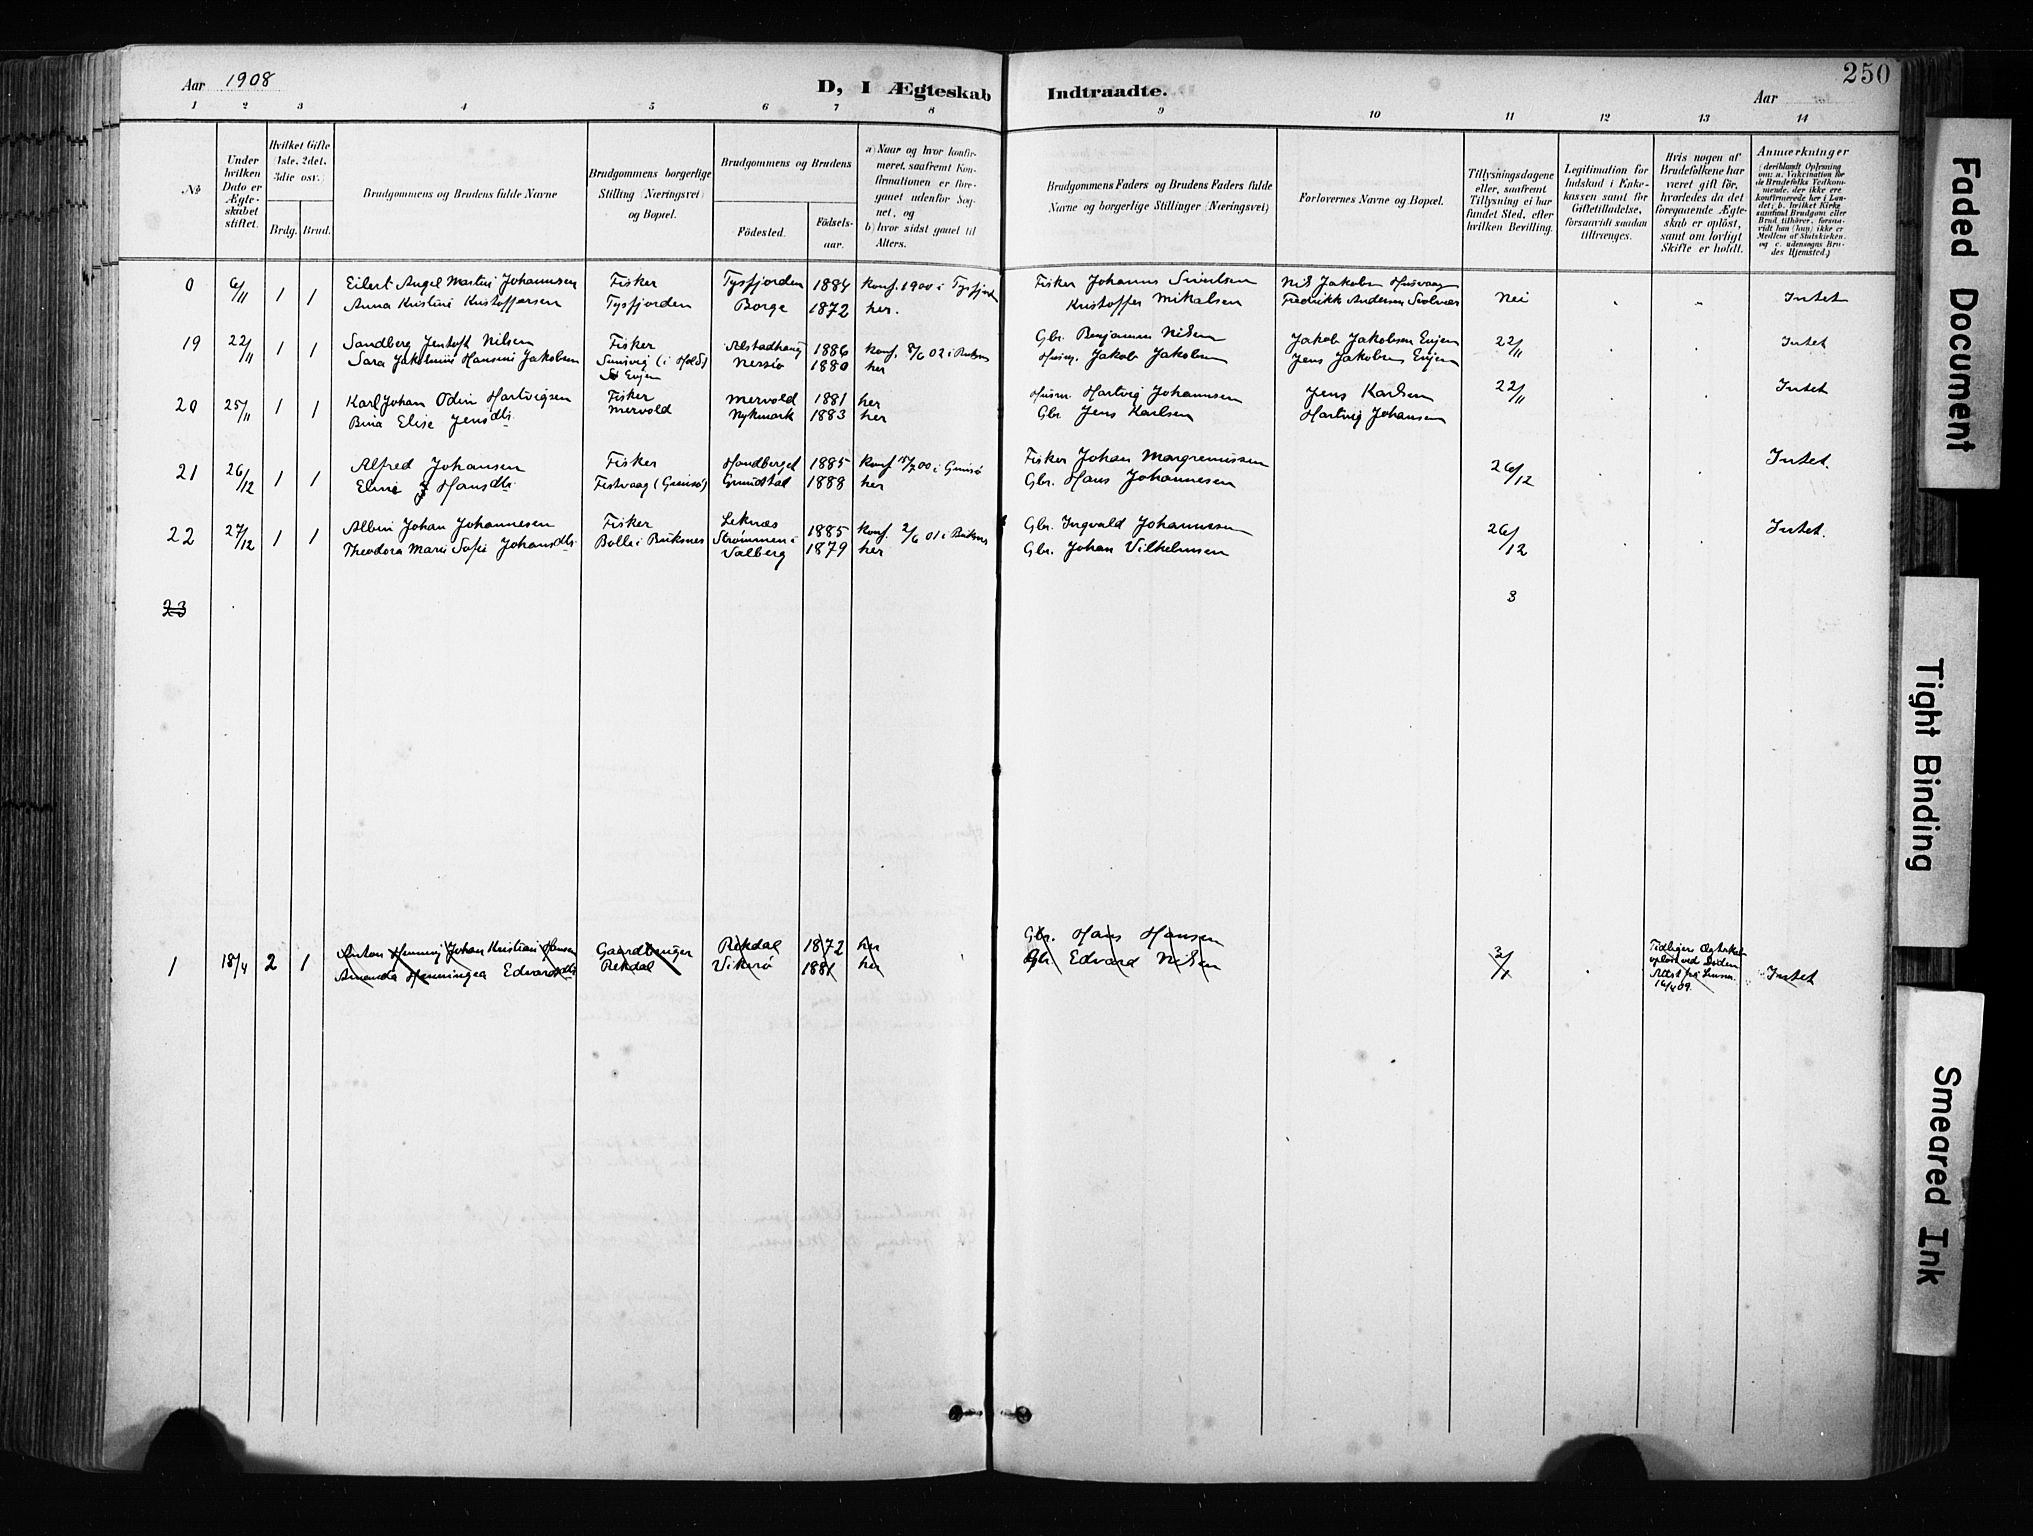 250
Aar 1908
D, I Ægteskab Indtraadte.
Aar
1 2 3 4 5 6 7 8 9 10 11 12 13 14
No
Under hvilken Dato er Ægteskabet stiftet.
Hvilket Gifte (1ste, 2det, 3die osv.)
Brdg. Brud.
Brudgommens og Brudens fulde Navne
Brudgommens borgerlige Stilling (Næringsvei) og Bopæl.
Brudgommens og Brudens
Födested.
Födselsaar.
a) Naar og hvor konfirmeret, saafremt Konfirmationen er foregaaet udenfor Sognet, og
b) hvor sidst gaaet til Alters.
Brudgommens Faders og Brudens Faders fulde Navne og borgerlige Stillinger (Næringsvei)
Forlovernes Navne og Bopæl.
Tillysningsdagene eller, saafremt Tillysning ei har fundet Sted, efter hvilken Bevilling.
Legitimation for Indskud i Enkekassen samt for Giftetilladelse, forsaavidt saadan tiltrænges.
Hvis nogen af Brudefolkene har været gift för, hvorledes da det foregaaende Ægteskab er oplöst, samt om lovligt Skifte er holdt.
Anmærkninger
(deriblandt Oplysning om: a. Vakcination for de Brudefolks Vedkommende, der ikke ere konfirmerede her i Landet; b. hvilket Kirkesamfund Brudgom eller Brud tilhörer, forsaavidt han (hun) ikke er Medlem af Statskirken, og c. udensogns Brudes Hjemsted.)
0 6/11 1 1 Eilert Angel Martin Johannesen Fisker Tysfjorden 1884 Konf. 1900 i Tysfjord Fisker Johannes Nils Jakobsen
Anna Kristine Kristoffersen Tysfjorden Borge 1872 her. Kristoffer Mikalsen Fredrikk Andersen Svolvær Nei Intet
19 22/11 1 1 Sandberg Jentoft Nilsen Fisker Alstadhaug 1886 Konf. 02 i Buksnes Gbr. Benjamin Nilsen Jakob Jakobsen Evjen 22/11 Intet
Sara Jakobine Hansine Jakobsen 1880 her Jakob Jakobsen Jens Jakobsen Evjen
Evjen
20 25/11 1 1 Karl Johan Odin Hartvigsen Fisker Mervold 1881 her Husm. Hartvig Johannesen Jens Karlsen 22/11 Intet
Bina Elise Jensdtr Mervold Nykmark 1883 her Gbr. Jens Karlsen Hartvig Johansen
21 26/12 1 1 Alfred Johansen Fisker 1885 Konf. 00 i Gimsø Fisker Johan 26/12 Intet.
Hansdtr Festvaag (Gimsø) Grundstad 1888 her Gbr. Hans Johannesen
22 27/12 1 1 Albin Johan Johannesen Fisker Leknæs 1885 Konf. 2/6 01 i Buksnes Gbr. Ingvald Johannesen 26/12 Intet.
Theodora Marie Sofie Johansdtr Bolle i Buksnes Strømmen i Valberg 1879 her Gbr. Johan Vilhelmsen
23 3
1 18/4 2 1 Anton Henning Johan Kristian Hansen Gaardbruger Rekdal 1872 her Gbr. Hans Hansen 3/1 Tidligere Ægteskab
Amanda Henningea Edvardsdtr Rekdal Vikerø 1881 her Gbr. Edvard Nilsen opløst ved Døden
Attest fra Lensm. 16/4 09. Intet
Faded Document
Tight Binding
Smeared Ink